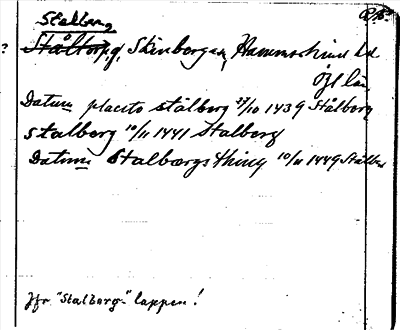 Stalberg
? Ståltorp, g, Skinbergen, Hammarkind hd
Ögl län
Datum placito stålberg 27/10 1439 Stålberg
stalberg 10/11 1441 Stalberg
Datum Stalbærgs thing 10/11 1449 Stålbe
Jfr "Stalberg" lappen!